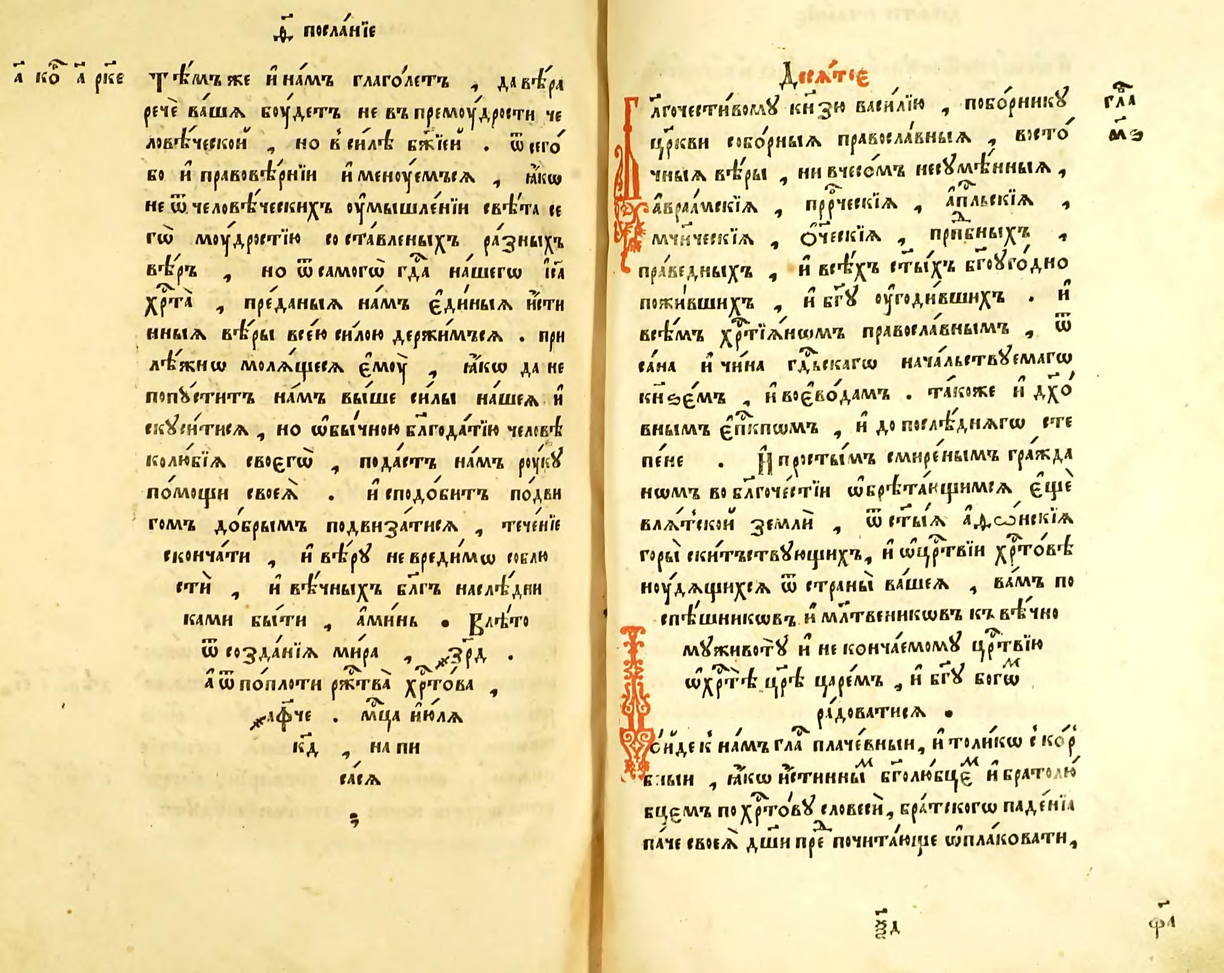 посла́нїе
тѣ́мъже и҆ на́мъ глаго́летъ , да вѣ́ра
речѐ ва́шѧ боу́детъ не въ премоу́дрости че
ловѣ́ческой , но в си́лѣ бж҃їей . ѿ сего́
бо и҆ правовѣ́рнїи и҆менꙋ́емъсѧ , ꙗ҆́кѡ
не ѿ человѣ́ческихъ оу҆мышле́нїи свѣ́та се
гѡ̀ моу́дростїю соста́вленыхъ ра́зныхъ
вѣ́ръ , но ѿ самогѡ̀ гдⷭ҇а на́шегѡ і҆с҃а
хрⷭ҇та̀ , пре́даныѧ на́мъ є҆ди́ныѧ и҆́сти
нныѧ вѣ́ры все́ю си́лою держи́мъсѧ . при
лѣ́жнѡ молѧ́щесѧ є҆моу̀ , ꙗ҆́кѡ да не
попꙋ́ститъ на́мъ вы́ше си́лы на́шеѧ и҆
скꙋси́тисѧ , но ѡ҆бы́чною бл҃года́тїю человѣ
колю́бїѧ своегѡ̀ , пода́стъ на́мъ роу́кꙋ
по́мощи своеѧ̀ . и҆ сподо́битъ по́дви
гомъ до́брымъ подвиза́тисѧ , тече́нїе
сконча́ти , и҆ вѣ́рꙋ невреди́мѡ соблю
стѝ , и҆ вѣ́чныхъ бл҃гъ наслѣ́дни
ками бы́ти , а҆ми́нь . Влѣ́то
ѿ созда́нїѧ ми́ра , ҂зрд .
а҆ ѿ по́плоти ржⷭ҇тва̀ хрⷭ҇то́ва ,
҂афч҃е . мцⷭ҇а и҆ю́лѧ
кд҃ , напи
са́сѧ
Десѧ́тое
лгочести́вомꙋ кнѧ҃зю васи́лїю , побо́рникꙋ
цр҃кви собо́рныѧ правосла́вныѧ , восто́
чныѧ вѣ́ры , ни вчесо́мъ несꙋмѣ́нныѧ ,
а҆враа́мскїѧ , прⷪ҇рческїѧ , а҆пⷭ҇льскїѧ ,
мч҃ническїѧ , ѻ҆ч҃ескїѧ , прпⷣбныхъ ,
пра́ведныхъ , и҆ всѣ́хъ ст҃ы́хъ бг҃оуго́дно
пожи́вшихъ , и҆ бг҃ꙋ оу҆годи́вшихъ . и҆
всѣ́мъ хрⷭ҇тїѧ́нѡмъ правосла́внымъ , ѿ
са́на и҆ чи́на гдⷭ҇ьскагѡ нача́льствꙋемагѡ
кнѕе́мъ , и҆ воево́дам . та́коже и҆ дх҃о́
внымъ є҆пⷭ҇кпѡмъ , и҆ до послѣ́днѧгѡ сте
пене . И҆ просты́мъ смире́нымъ гра́жда
нѡмъ во бл҃гоче́стїи ѡ҆брѣта́ющимсѧ є҆щѐ
влѧ́тской землѝ , ѿ ст҃ы́ѧ а҆фѡ́нскїѧ
горы̀ скитьствꙋющихъ , и҆ ѡ҆ црⷭ҇твїи хрⷭ҇то́вѣ
ноудѧ́щихсѧ ѿ страны̀ ва́шеѧ , ва́мъ по
спѣ́шникѡвъ и҆ мл҃твеникѡвъ къ вѣ́чно
мꙋ животꙋ̀ и҆ не конча́емомꙋ црⷭ҇твїю
ѡ҆ хрⷭ҇тѣ̀ цр҃ѣ царе́мъ , и҆ бг҃ꙋ богѡⷨ
ра́доватисѧ .
о́йде к на́мъ гла́ плаче́вныи , и҆ толи́кѡ ско́р
бныи , ꙗ҆́кѡ и҆́стинныⷨ бг҃олю́бцеⷨ и҆ братолю́
бцемъ по хрⷭ҇то́вꙋ словесѝ , бра́тскогѡ паде́нїѧ
па́че своеѧ̀ дш҃и преⷣпочита́юще ѡ҆пла́ковати ,